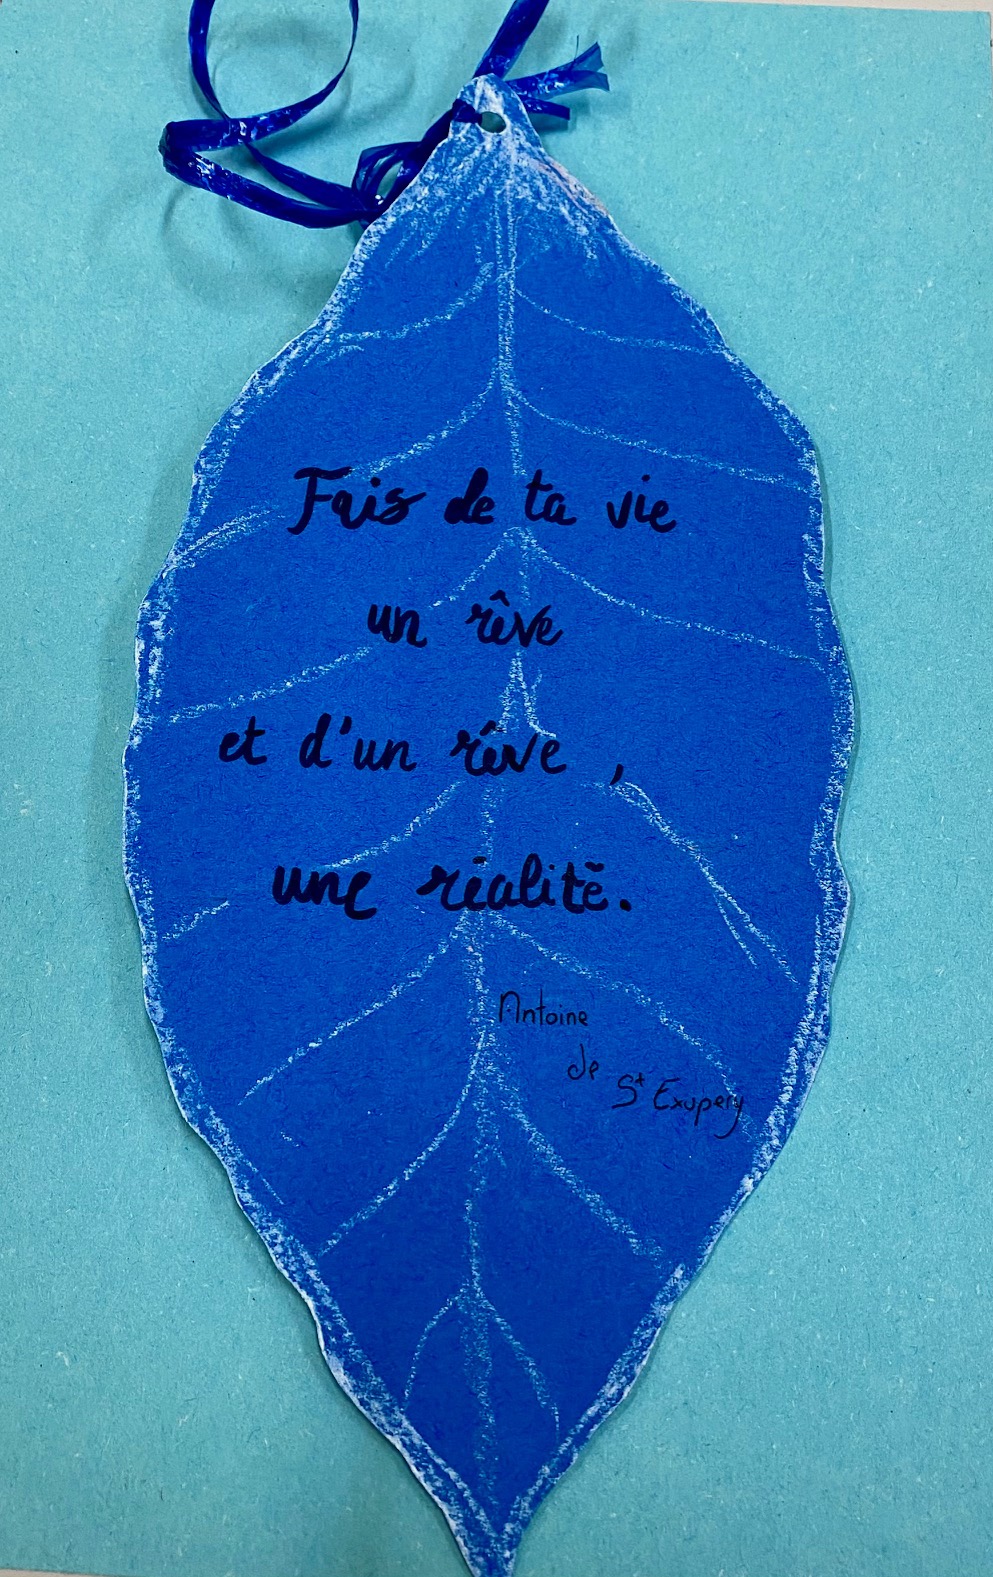 Fais de ta vie
un rêve
et d'un rêve ,
une réalité.
Antoine
de
St Exupery